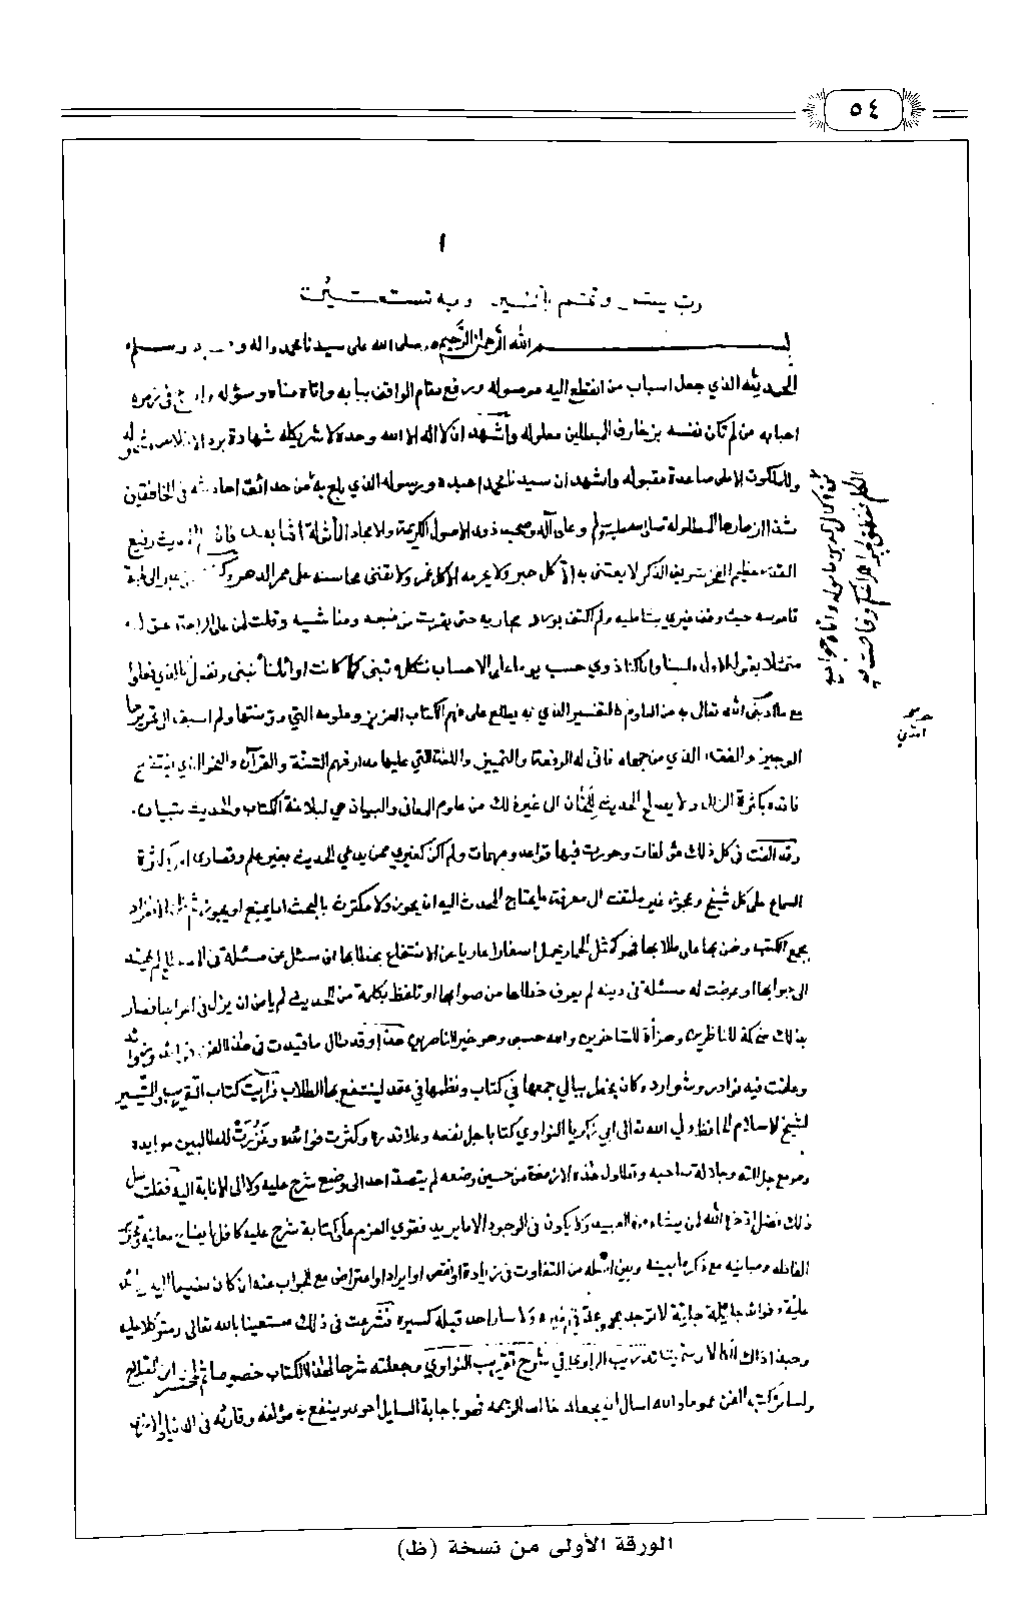 ٥٤
١
رب يسر وتمم بالخير وبه نستعين
بسم الله الرحمن الرحيم وصلى الله على سيدنا محمد واله وسلم
الحمد لله الذي جعل اسباب من انقطع اليه موصوله ورفع مقام الواقف ببابه واتاه مناه وسؤله في زمرة
احبابه من لم تكن نفسه بزخارف المبطلين معلوله واشهد ان لا اله الا الله وحده لا شريك له شهادة
وللملكوت الاعلى صاعدة مقبوله واشهد ان سيدنا محمدا عبده ورسوله الذي في الخافقين
وعلى آله وصحبه ذوى الاصول الكريمة والامجاد المأثولة اما بعد فان رفيع
القدر عظيم الفخر شريف الذكر لا يعتنى به الا كل حبر ولا يحرمه الا كل غمر ولا تفنى محاسنه على ممر الدهر وكنت
قاموسه حيث وقف غيري بشاطيه ولم اكتف بورود مجاريه حتى بقرت عن منبعه ومناشيه وقلت لمن على الراحة
متمثلا بقول الاول لسنا وان كنا ذوي حسب يوما على الاحساب نتكل نبنى كما كانت اوائلنا تبنى ونفعل
مع ما امدنى الله تعالى به من العلوم كالتفسير الذي به يطلع على فهم الكتاب العزيز وعلومه التي دونتها ولم اسبق الى تحريرها
الوجيز والفقه الذي من جهله فاني له الرفعة والتمييز واللغة التي عليها مدار فهم السنة والقرآن والنحو الذي يفتضح
فاقده بكثرة الزلل ولا يصلح الحديث للحان الى غير ذلك من علوم المعاني والبيان هي لبلاغة الكتاب والحديث تبيان.
وقد الفت في كل ذلك مؤلفات وحررت فيها قواعد ومهمات ولم اكن كغيري ممن يدعي الحديث بغير علم وقصارى امره كثرة
السماع على كل شيخ وعجوز غير ملتفت الى معرفة ما يحتاج المحدث اليه ان يحوز ولا مكترث بالبحث عما يمتنع او يجوز
بجمع الكتب وضن بها على طلابها فهو كمثل الحمار يحمل اسفارا عاريا عن الانتفاع بخطابها ان سئل عن مسئلة في لم يهتد
الى جوابها او عرضت له مسئلة في دينه لم يعرف خطاها من صوابها او تلفظ بكلمة من الحديث لم يامن ان يزل في اعرابها فصار
بذلك ضحكة للناظرين وهزأة للساخرين والله حسبى وهو خير الناصرين هذا وقد طال ما قيدت في هذا الفن فوائد
وعلقت فيه نوادر وشوارد وكان يخطر ببالي جمعها في كتاب ونظمها في عقد لينتفع بها الطلاب فرايت كتاب التقريب والتيسير
لشيخ الاسلام الحافظ ولي الله تعالى ابي زكريا النواوي كتابا جل نفعه وعلا قدره وكثرت فوائده وغزرت للطالبين موايده
وهو مع جلالته وجلالة صاحبه وتطاول هذه الازمنة من حين وضعه لم يتصد احد الى وضع شرح عليه ولا الى الانابة اليه فقلت لعل
ذلك فضل اذخره الله لمن يشاء من العبيد ولا يكون في الوجود الا ما يريد فقوي العزم على كتابة شرح عليه كافل بايضاح معانيه وتحرير
الفاظه ومبانيه مع ذكر ما بينه وبين اصله من التفاوت في زيادة او نقص او ايراد او اعتراض مع الجواب عنه ان كان مضيفا اليه
علية وفوائد جليلة لا توجد مجموعة في غيره ولا سار احد قبله كسيره فشرعت في ذلك مستعينا بالله تعالى ومتوكلا عليه
وحبذا ذاك اتكالا وسميته تدريب الراوي في شرح تقريب النواوي وجعلته شرحا لهذا الكتاب خصوصا ثم لمختصر ابن الصلاح
ولسائر كتب الفن عموما والله اسال ان يجعله خالصا لوجهه فهو باجابة السايل احرى وينفع به مؤلفه وقاريه في الدنيا والاخرى
الورقة الأولى من نسخة (ظ)